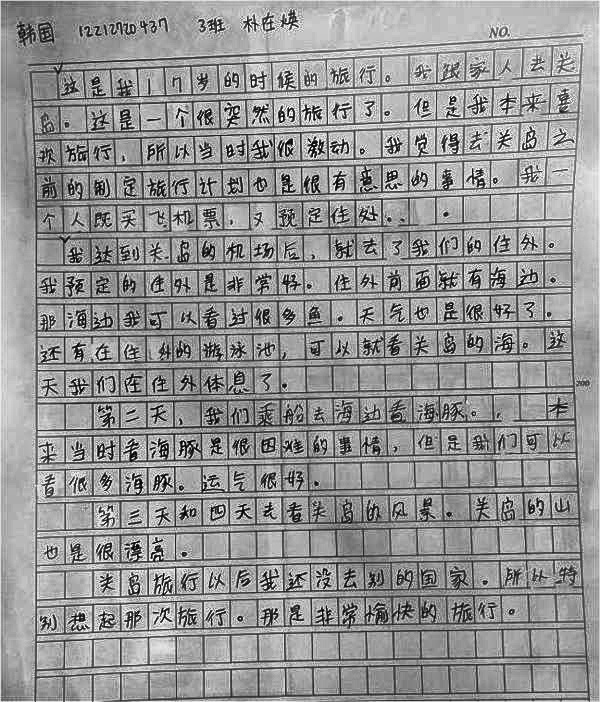 韩国 12212720437 3班 朴在煐
NO.
这是我17岁的时候的旅行。我跟家人去关
岛。这是一个很突然的旅行了。但是我本来喜
欢旅行，所以当时我很激动。我觉得去关岛之
前的制定旅行计划也是很有意思的事情。我一
个人既买飞机票，又预定住处。
我达到关岛的机场后，就去了我们的住外。
我预定的住外是非常好。住外前面就有海边。
那海边我可以看过很多鱼。天气也是很好了。
还有在住外的游泳池，可以就看关岛的海。这
天我们在住外体息了。
200
第二天，我们乘船去海边看海豚。，本
来当时看海豚是很困难的事情，但是我们可以
看很多海豚。运气很好。
第三天和四天去看关岛的风景。关岛的山
也是很漂亮。
关岛旅行以后我还没去别的国家。所以特
别想起那次旅行。那是非常愉快的旅行。